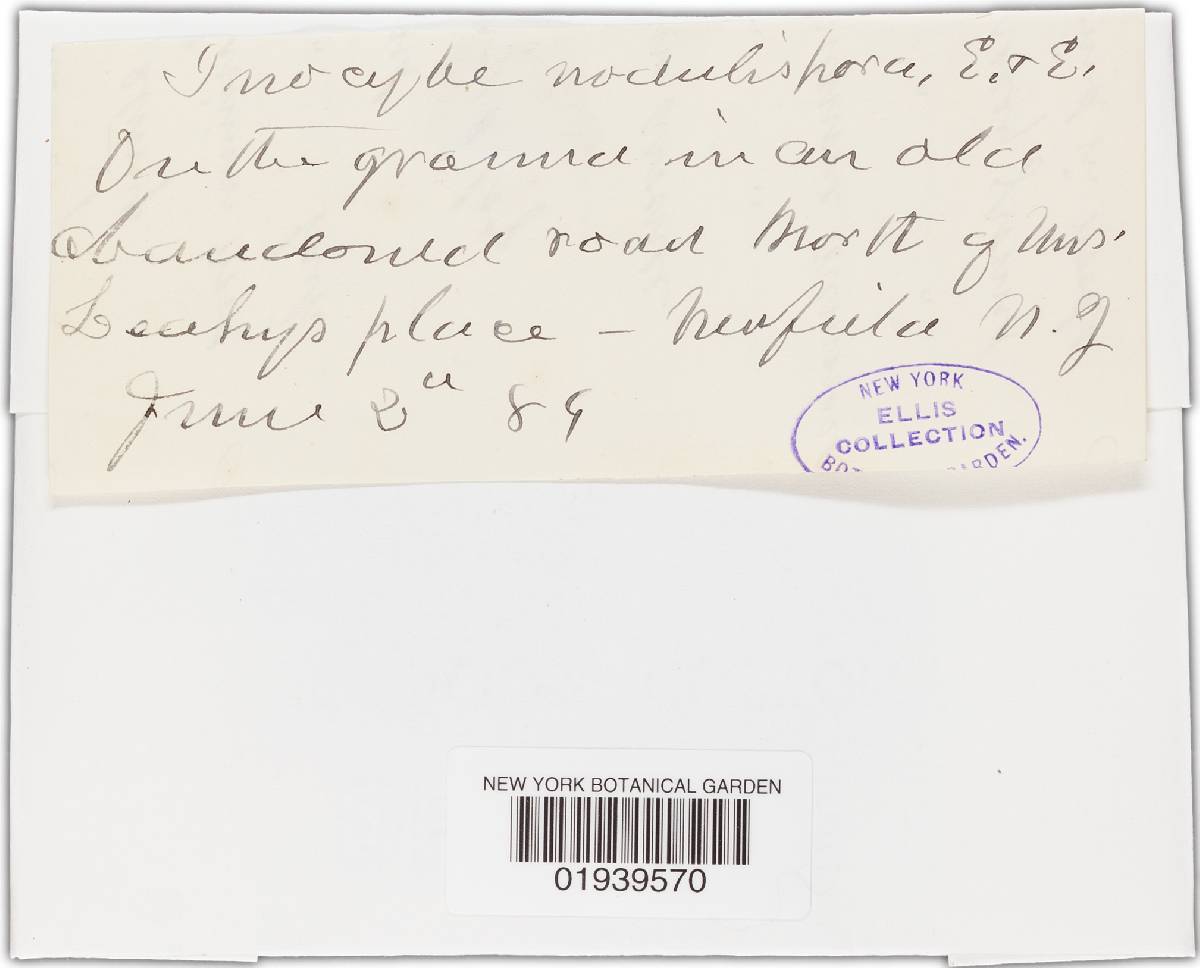 Inocybe nodulispora, E. & E.
On the ground in an old
abandoned road North of Mrs.
Leahys place – Newfield N. J
June 2d 89
NEW YORK
ELLIS
COLLECTION
NEW YORK BOTANICAL GARDEN
01939570